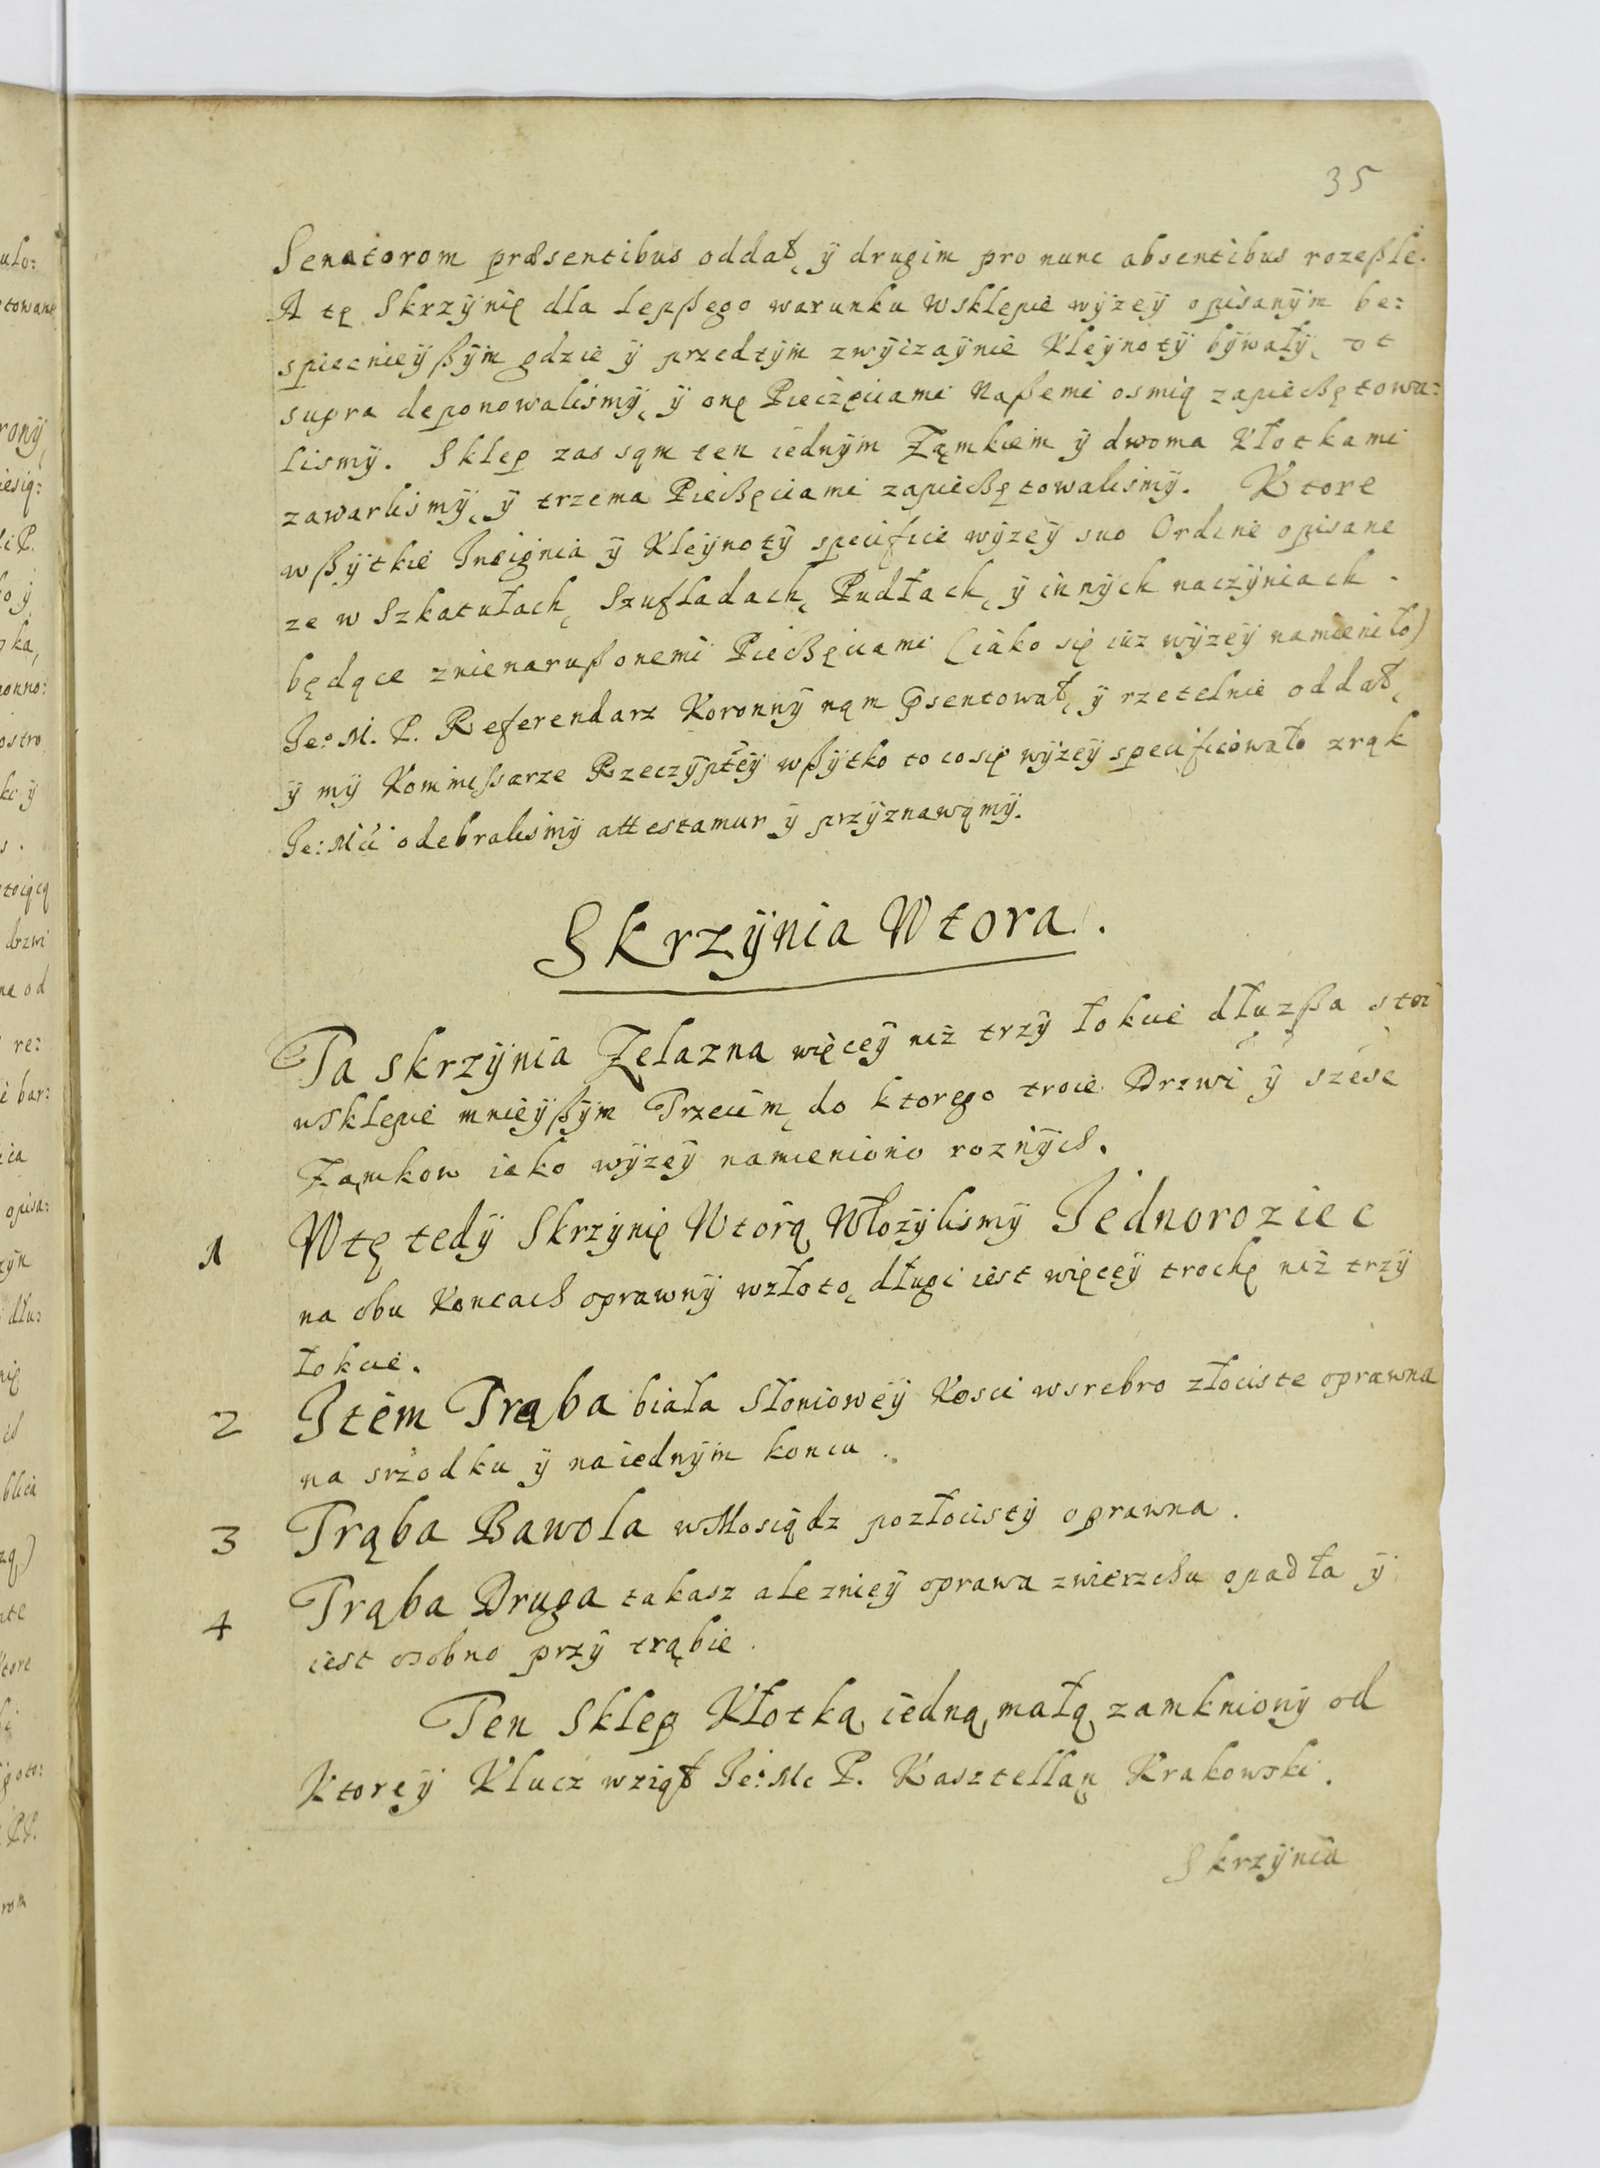 35
Senatorom præsentibus oddał, ÿ drugim pro nunc absentibus rozeßle.
A tę Skrzÿnię dla lepßego warunku w sklepie wÿzeÿ opisanÿm be:
spiecznieÿßÿm gdzie ÿ przedtÿm zwÿczaÿnie Kleÿnotÿ bÿwałÿ, ut
supra deponowalismÿ, ÿ onę Pieczęciami Naßemi osmią zapieczętowa:
lismÿ. Sklep zas sąm ten iednÿm Ząmkiem ÿ dwoma Kłotkami
zawarlismÿ, ÿ trzema Pieczęciami zapieczętowalismÿ. Ktore
wßÿtkie Insignia ÿ Kleÿnotÿ specifice wÿzeÿ suo Ordine opisane
ze w Szkatułach, Szufladach, Pudłach, ÿ innÿch naczÿniach
będące znienarußonemi Pieczęciami (iako się iuz wÿzeÿ namieniło)
Je° M. P. Referendarz Koronnÿ nąm p̄sentował, ÿ rzetelnie oddał,
ÿ mÿ Kommissarze Rzeczÿpteÿ wßÿtko to cosię wÿzeÿ specificowało zrąk
Je: Mći odebralismÿ attestamur ÿ przÿznawąmÿ.
Skrzÿnia Wtora.
Ta skrzÿnia Zelazna więceÿ niż trzÿ łokcie dłuzßa stoi
w Sklepie mnieÿßÿm Trzecim, do ktorego troie Drzwi ÿ szesc
Ząmkow iako wÿzeÿ namieniono roznÿch.
1 Wtę tedÿ Skrzÿnię Wtorą Włozÿlismÿ Jednoroziec
na obu Koncach oprawnÿ wzłoto, długi iest więceÿ trochę niż trzÿ
łokcie.
2 Item Trąba biała Słonioweÿ Kosci wsrebro złociste oprawna
na srzodku ÿ na iednÿm koncu.
3 Trąba Bawola w Mosiądz pozłocistÿ oprawna.
4 Trąba Druga takasz ale znieÿ oprawa zwierzchu opadła ÿ
iest osobno przÿ trąbie.
Ten Sklep Kłotką iedną małą zamknionÿ od
Ktoreÿ Klucz wziął Je: Mc P. Kasztellan Krakowski.
Skrzÿnia